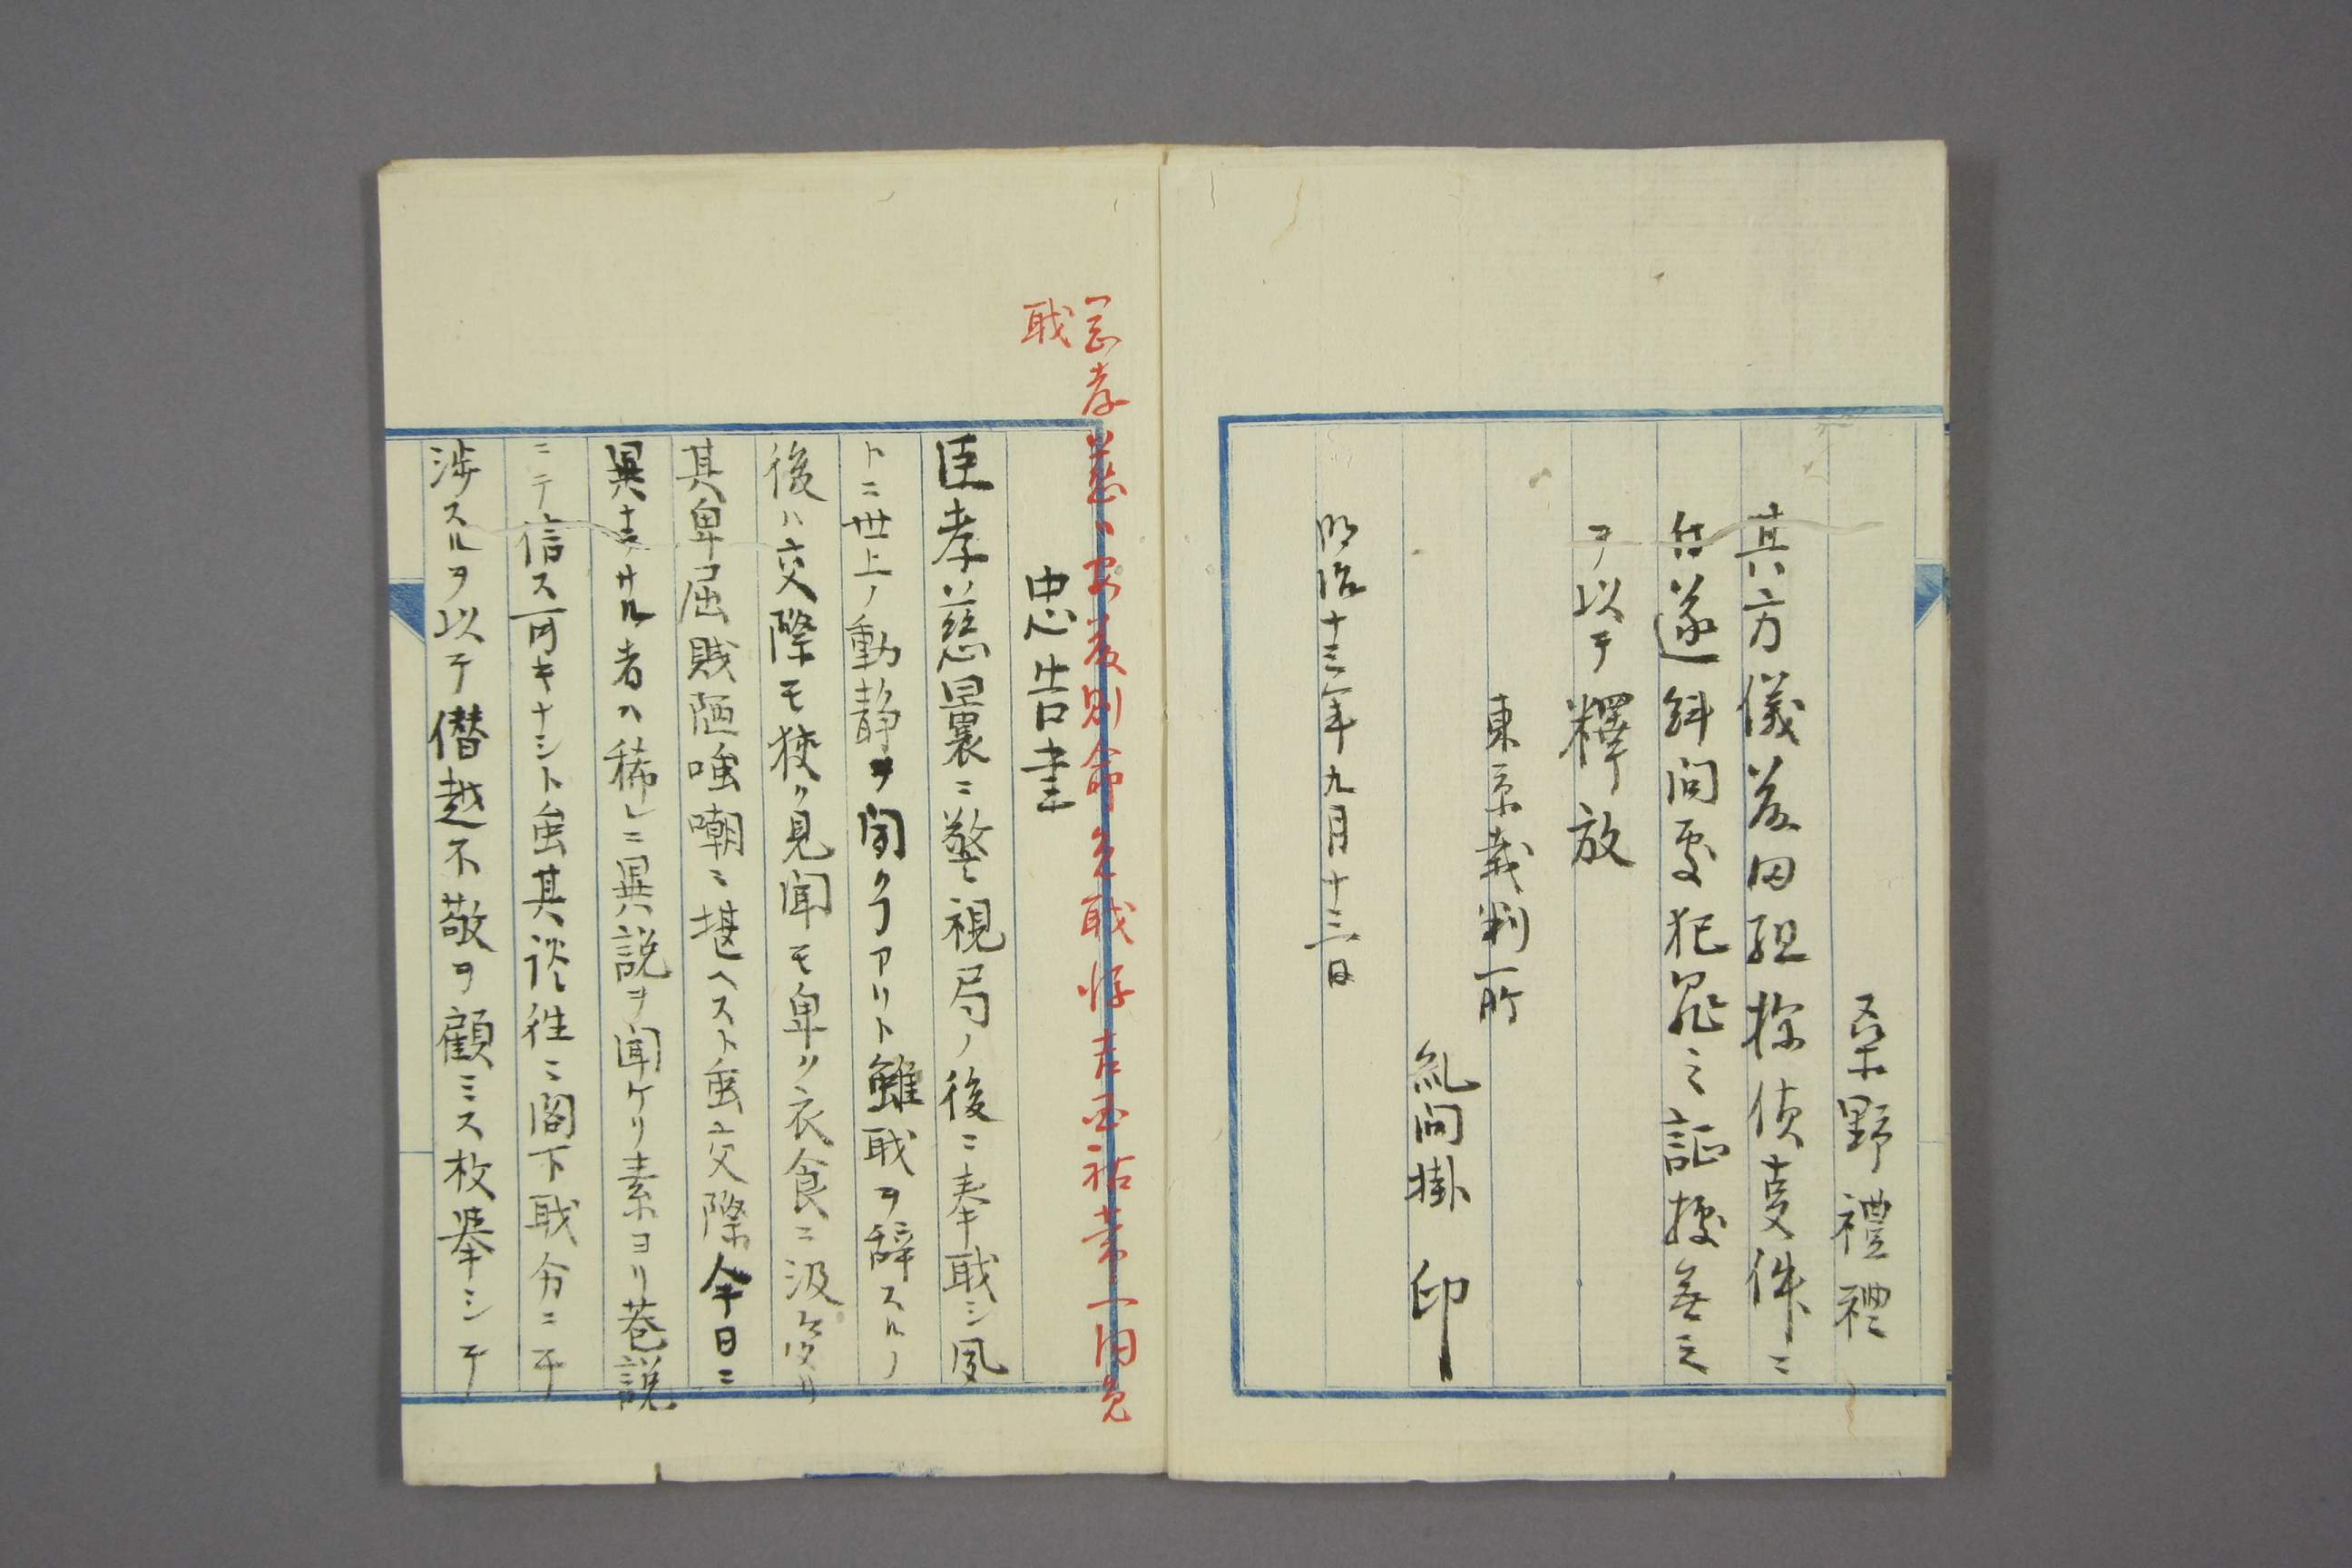 桑野禮禮
其方儀藤田組探偵一件ニ
付遂糾問處犯罪之証拠無之
ヲ以テ釋放
東京裁判所
糺問掛 印
明治十三年九月十三日
孝慈ハ安藤則命免職將吉西祐業一同免
職
忠告書
臣孝慈曩ニ警視局ノ後ニ奉職シ夙
トニ世上ノ動静ヲ聞クヿアリト雖職ヲ辞スルノ
後ハ交際モ狭ク見聞モ卑ク衣食ニ汲々タリ
其卑屈賎陋嗤嘲ニ堪ヘスト虽交際今日ニ
異ナラサル者ハ稀レニ異説ヲ聞ケリ素ヨリ巷説
ニテ信ス可キナシト虽其談往ニ閣下職分ニ干
渉スルヲ以テ僭越不敬ヲ顧ミス枚挙シテ